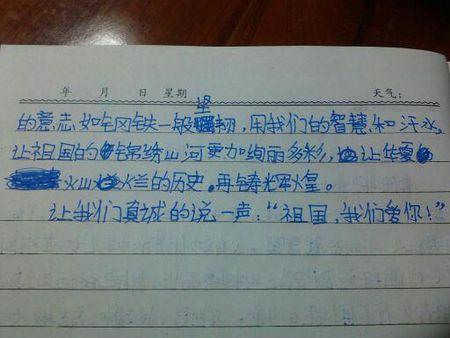 年 月 日 星期 天气：
坚
的意志如钢铁一般韧，用我们的智慧和汗水，
让祖国的锦绣山河更加绚丽多彩，让华夏
灿烂的历史。再铸辉煌。
让我们真诚的说一声：“祖国，我们爱你！”